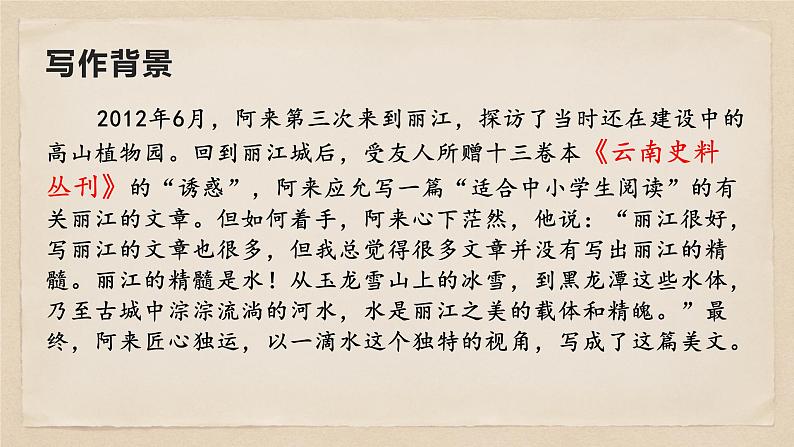 写作背景
2012年6月，阿来第三次来到丽江，探访了当时还在建设中的
高山植物园。回到丽江城后，受友人所赠十三卷本《云南史料
丛刊》的“诱惑”，阿来应允写一篇“适合中小学生阅读”的有
关丽江的文章。但如何着手，阿来心下茫然，他说：“丽江很好，
写丽江的文章也很多，但我总觉得很多文章并没有写出丽江的精
髓。丽江的精髓是水！从玉龙雪山上的冰雪，到黑龙潭这些水体，
乃至古城中淙淙流淌的河水，水是丽江之美的载体和精魄。”最
终，阿来匠心独运，以一滴水这个独特的视角，写成了这篇美文。